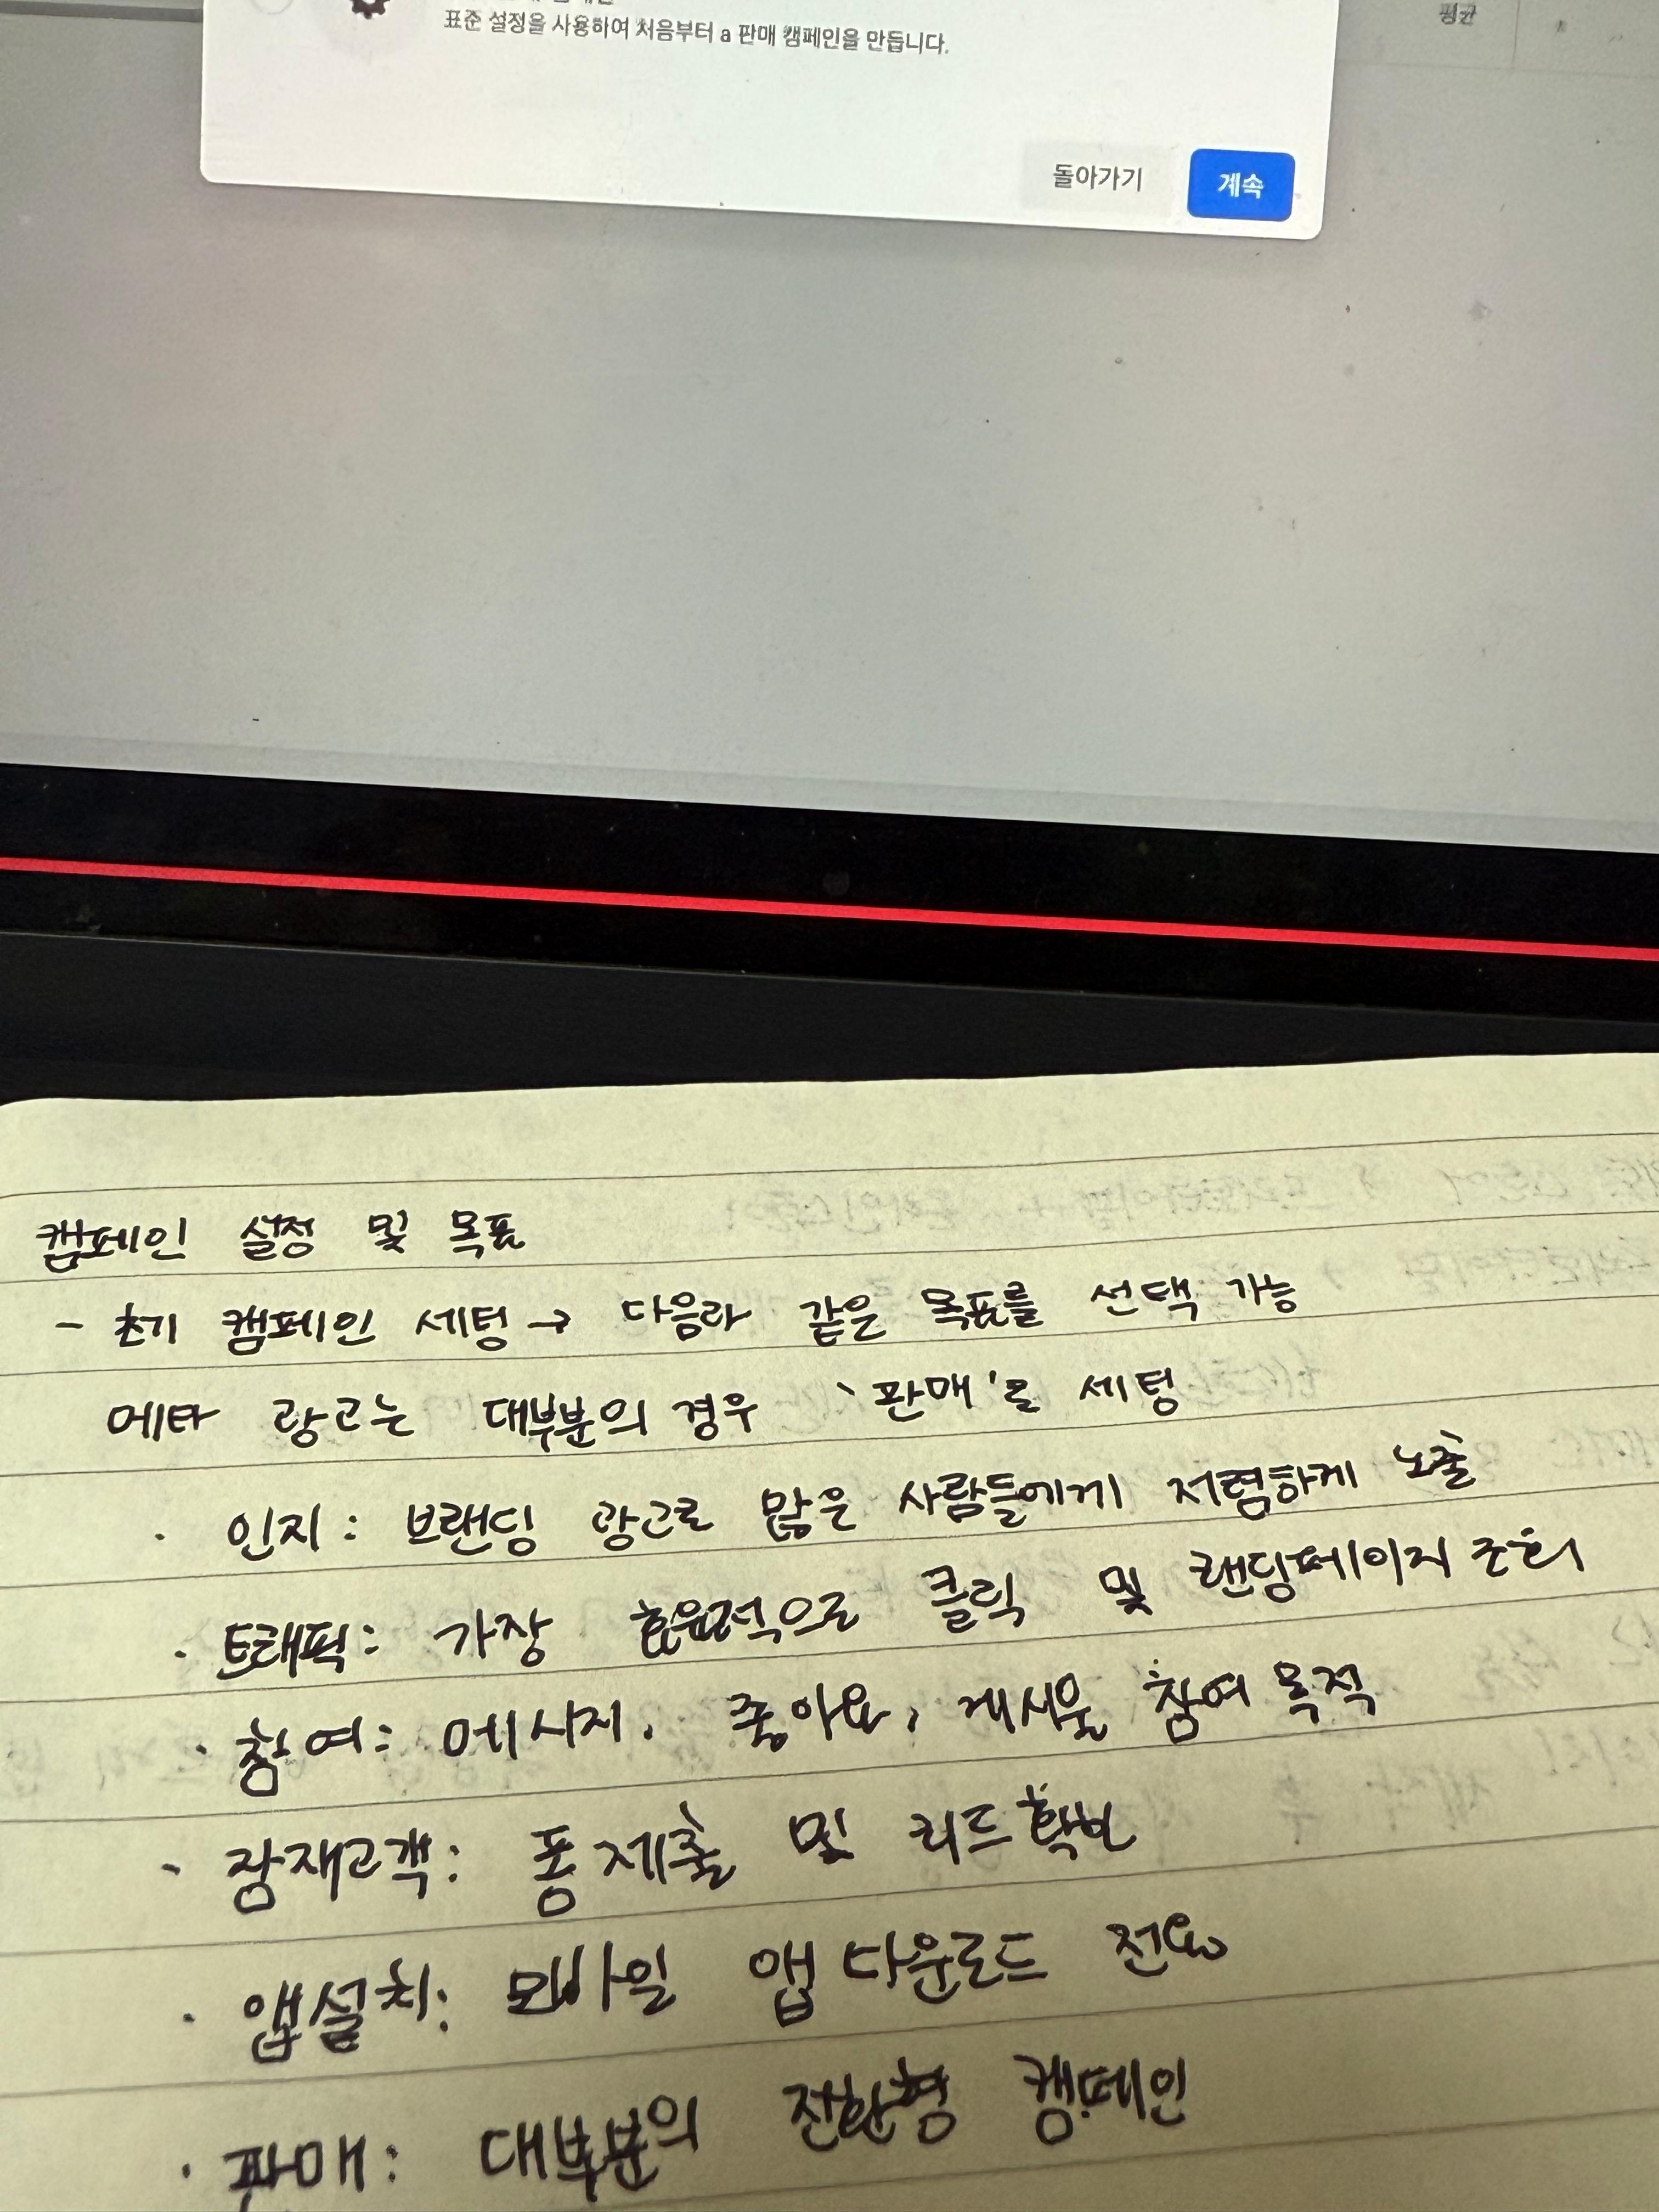 표준 설정을 사용하여 처음부터 a 판매 캠페인을 만듭니다.
평균
돌아가기
계속
캠페인 설정 및 목표
- 초기 캠페인 세팅 → 다음과 같은 목표를 선택 가능
메타 광고는 대부분의 경우 '판매'로 세팅
· 인지: 브랜딩 광고로 많은 사람들에게 저렴하게 노출
· 트래픽: 가장 효율적으로 클릭 및 랜딩페이지 조회
· 참여: 메시지, 좋아요, 게시물 참여 목적
· 잠재고객: 폼 제출 및 리드 확보
· 앱설치: 모바일 앱 다운로드 전용
· 판매: 대부분의 전환형 캠페인